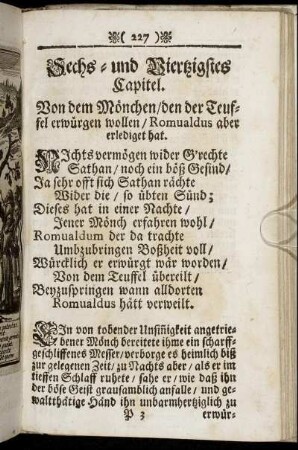 ( 227 )
Sechs- und Viertzigstes
Capitel.
Von dem Mönchen/den der Teuf-
fel erwürgen wollen/Romualdus aber
erlediget hat.
NIchts vermögen wider G'rechte
Sathan/noch ein böß Gesind/
Ja sehr offt sich Sathan rächte
Wider die/so übten Sünd;
Dieses hat in einer Nachte/
Jener Mönch erfahren wohl/
Romualdum der da trachte
Umbzubringen Boßheit voll/
Würcklich er erwürgt wär worden/
Von dem Teuffel übereilt/
Beyzuspringen wann alldorten
Romualdus hätt verweilt.
EIn von tobender Unsinigkeit angetrie-
bener Mönch bereitete ihme ein scharff-
geschliffenes Messer/verborge es heimlich biß
zur gelegenen Zeit/zu Nachts aber/als er im
tieffen Schlaff ruhete/sahe er/wie daß ihn
der böse Geist grausamblich anfalle/und ge-
waltthätige Händ ihn unbarmhertziglich zu
P 3 erwür-